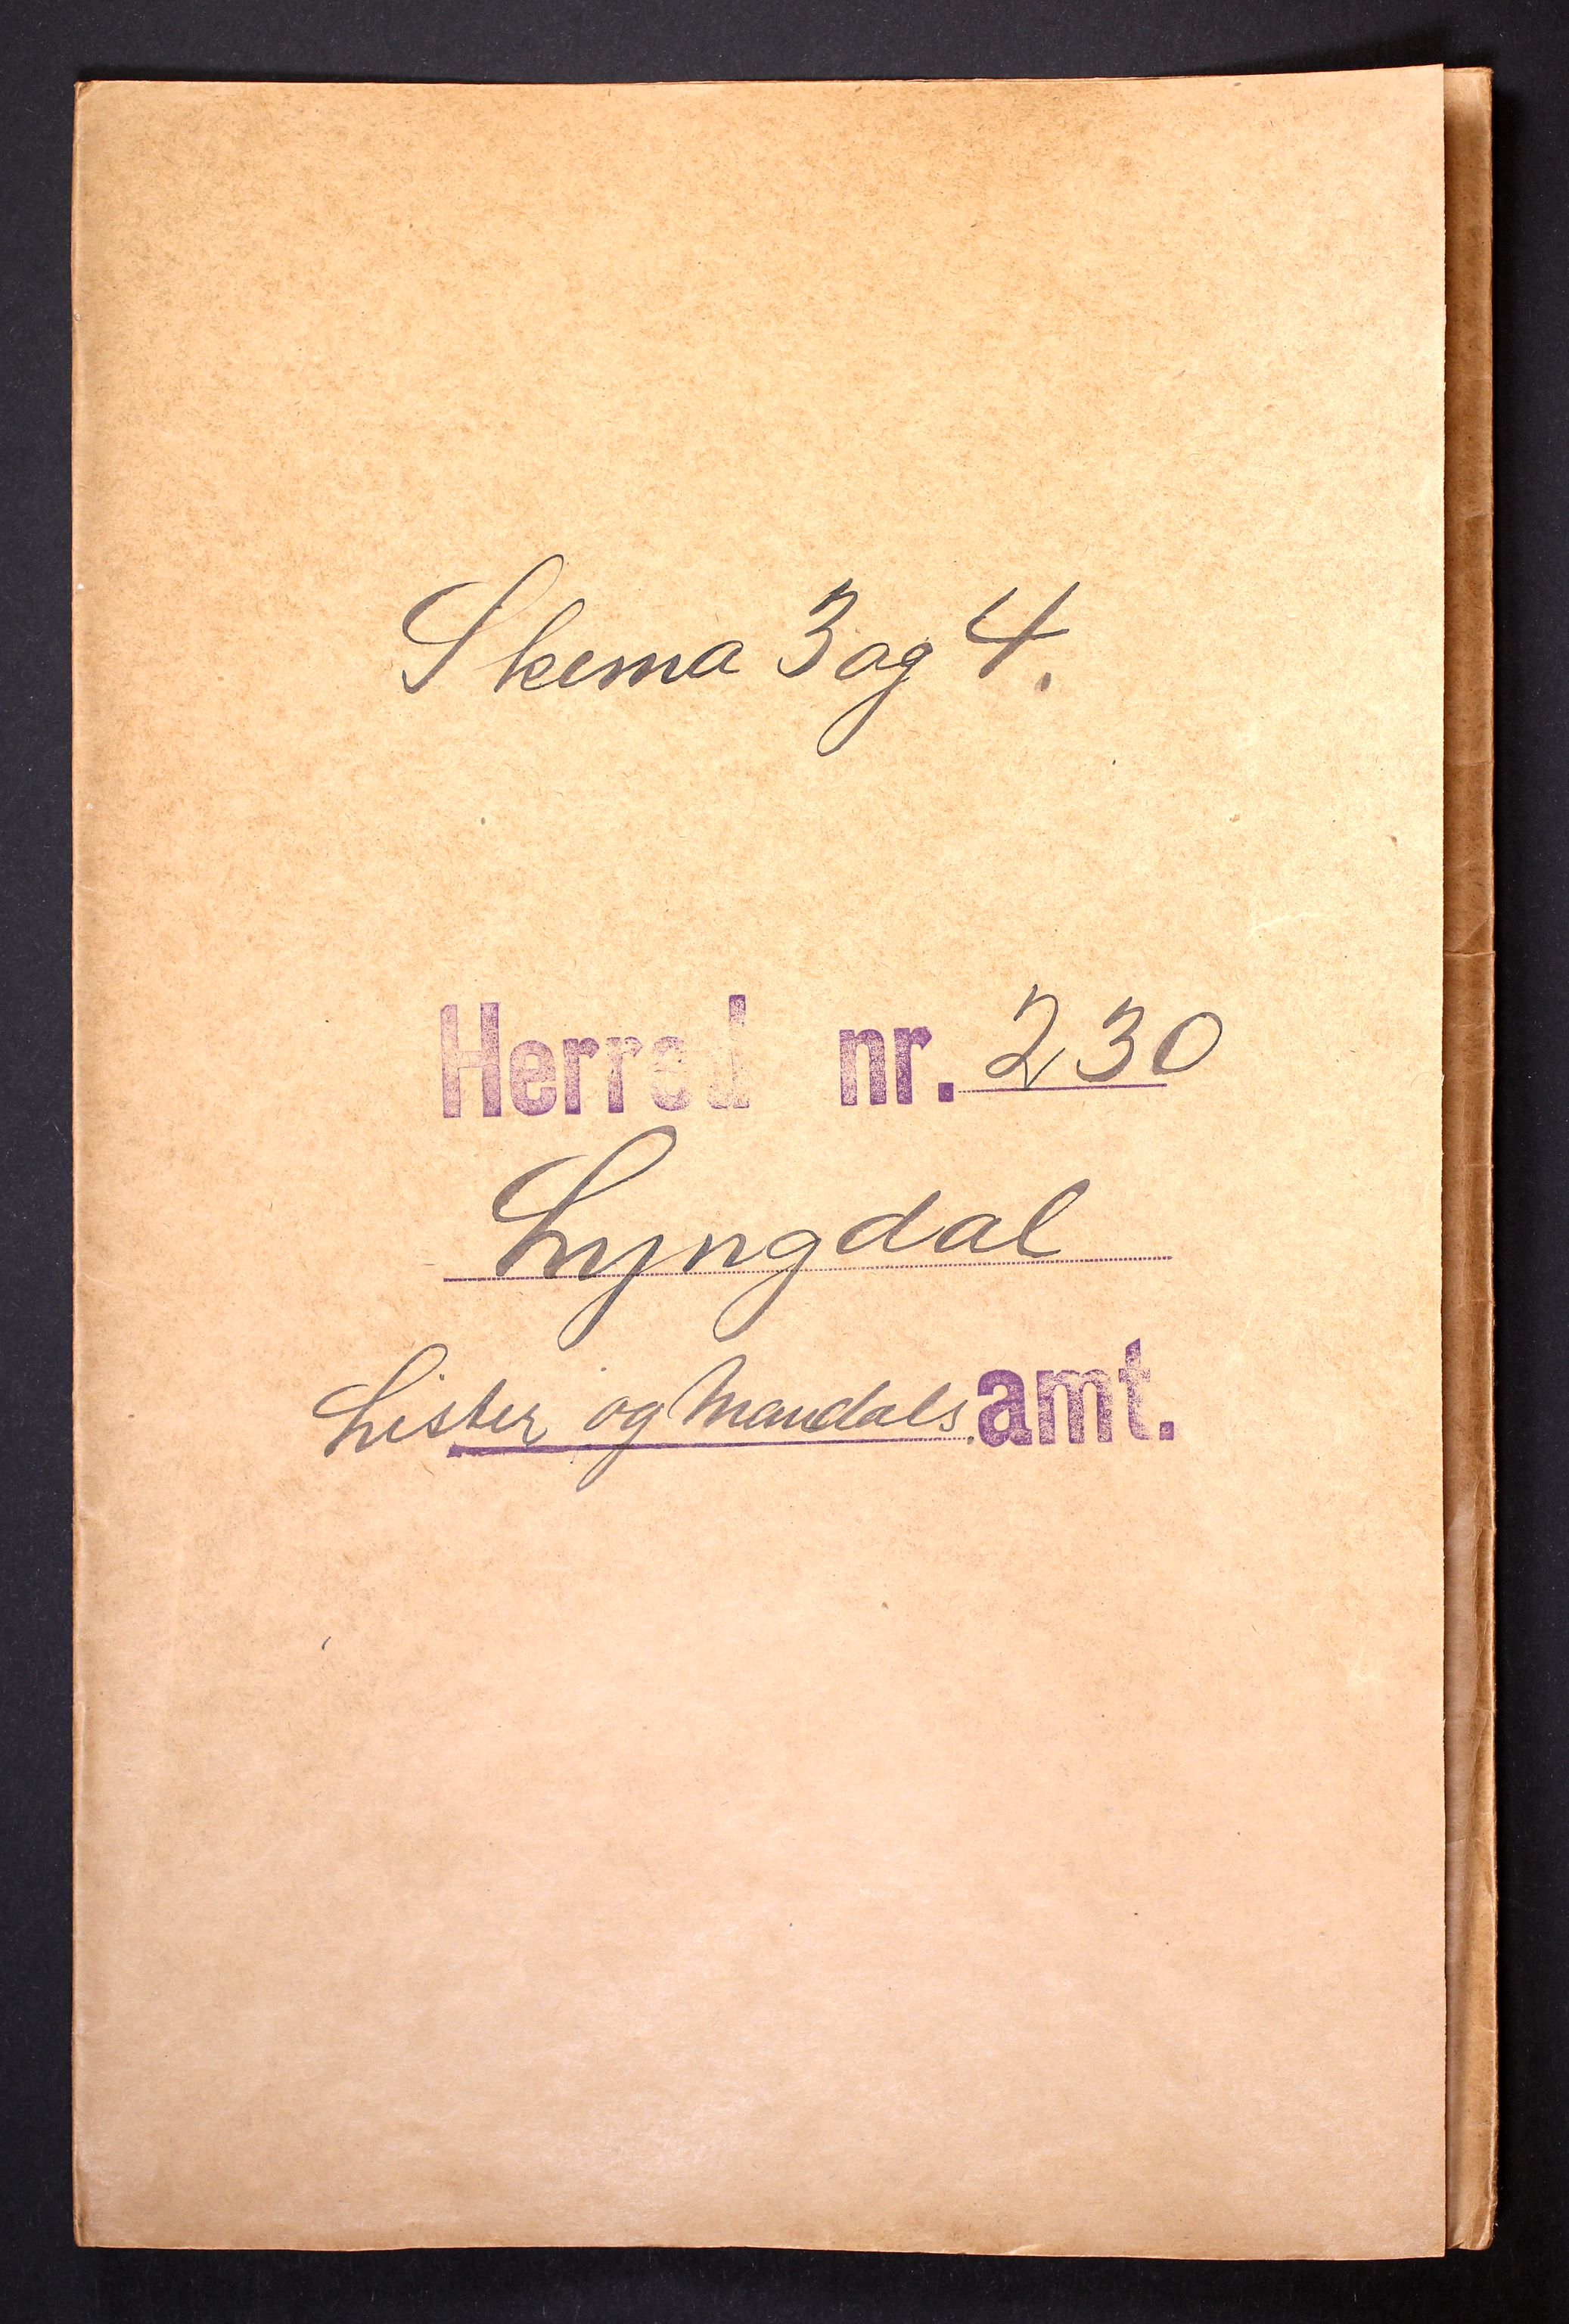 Skema 3 og 4.
Herred nr. 230
Lyngdal
Lister og Mandals amt.